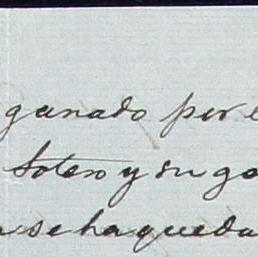 ganado por e
Sotero y su ga
se ha queda